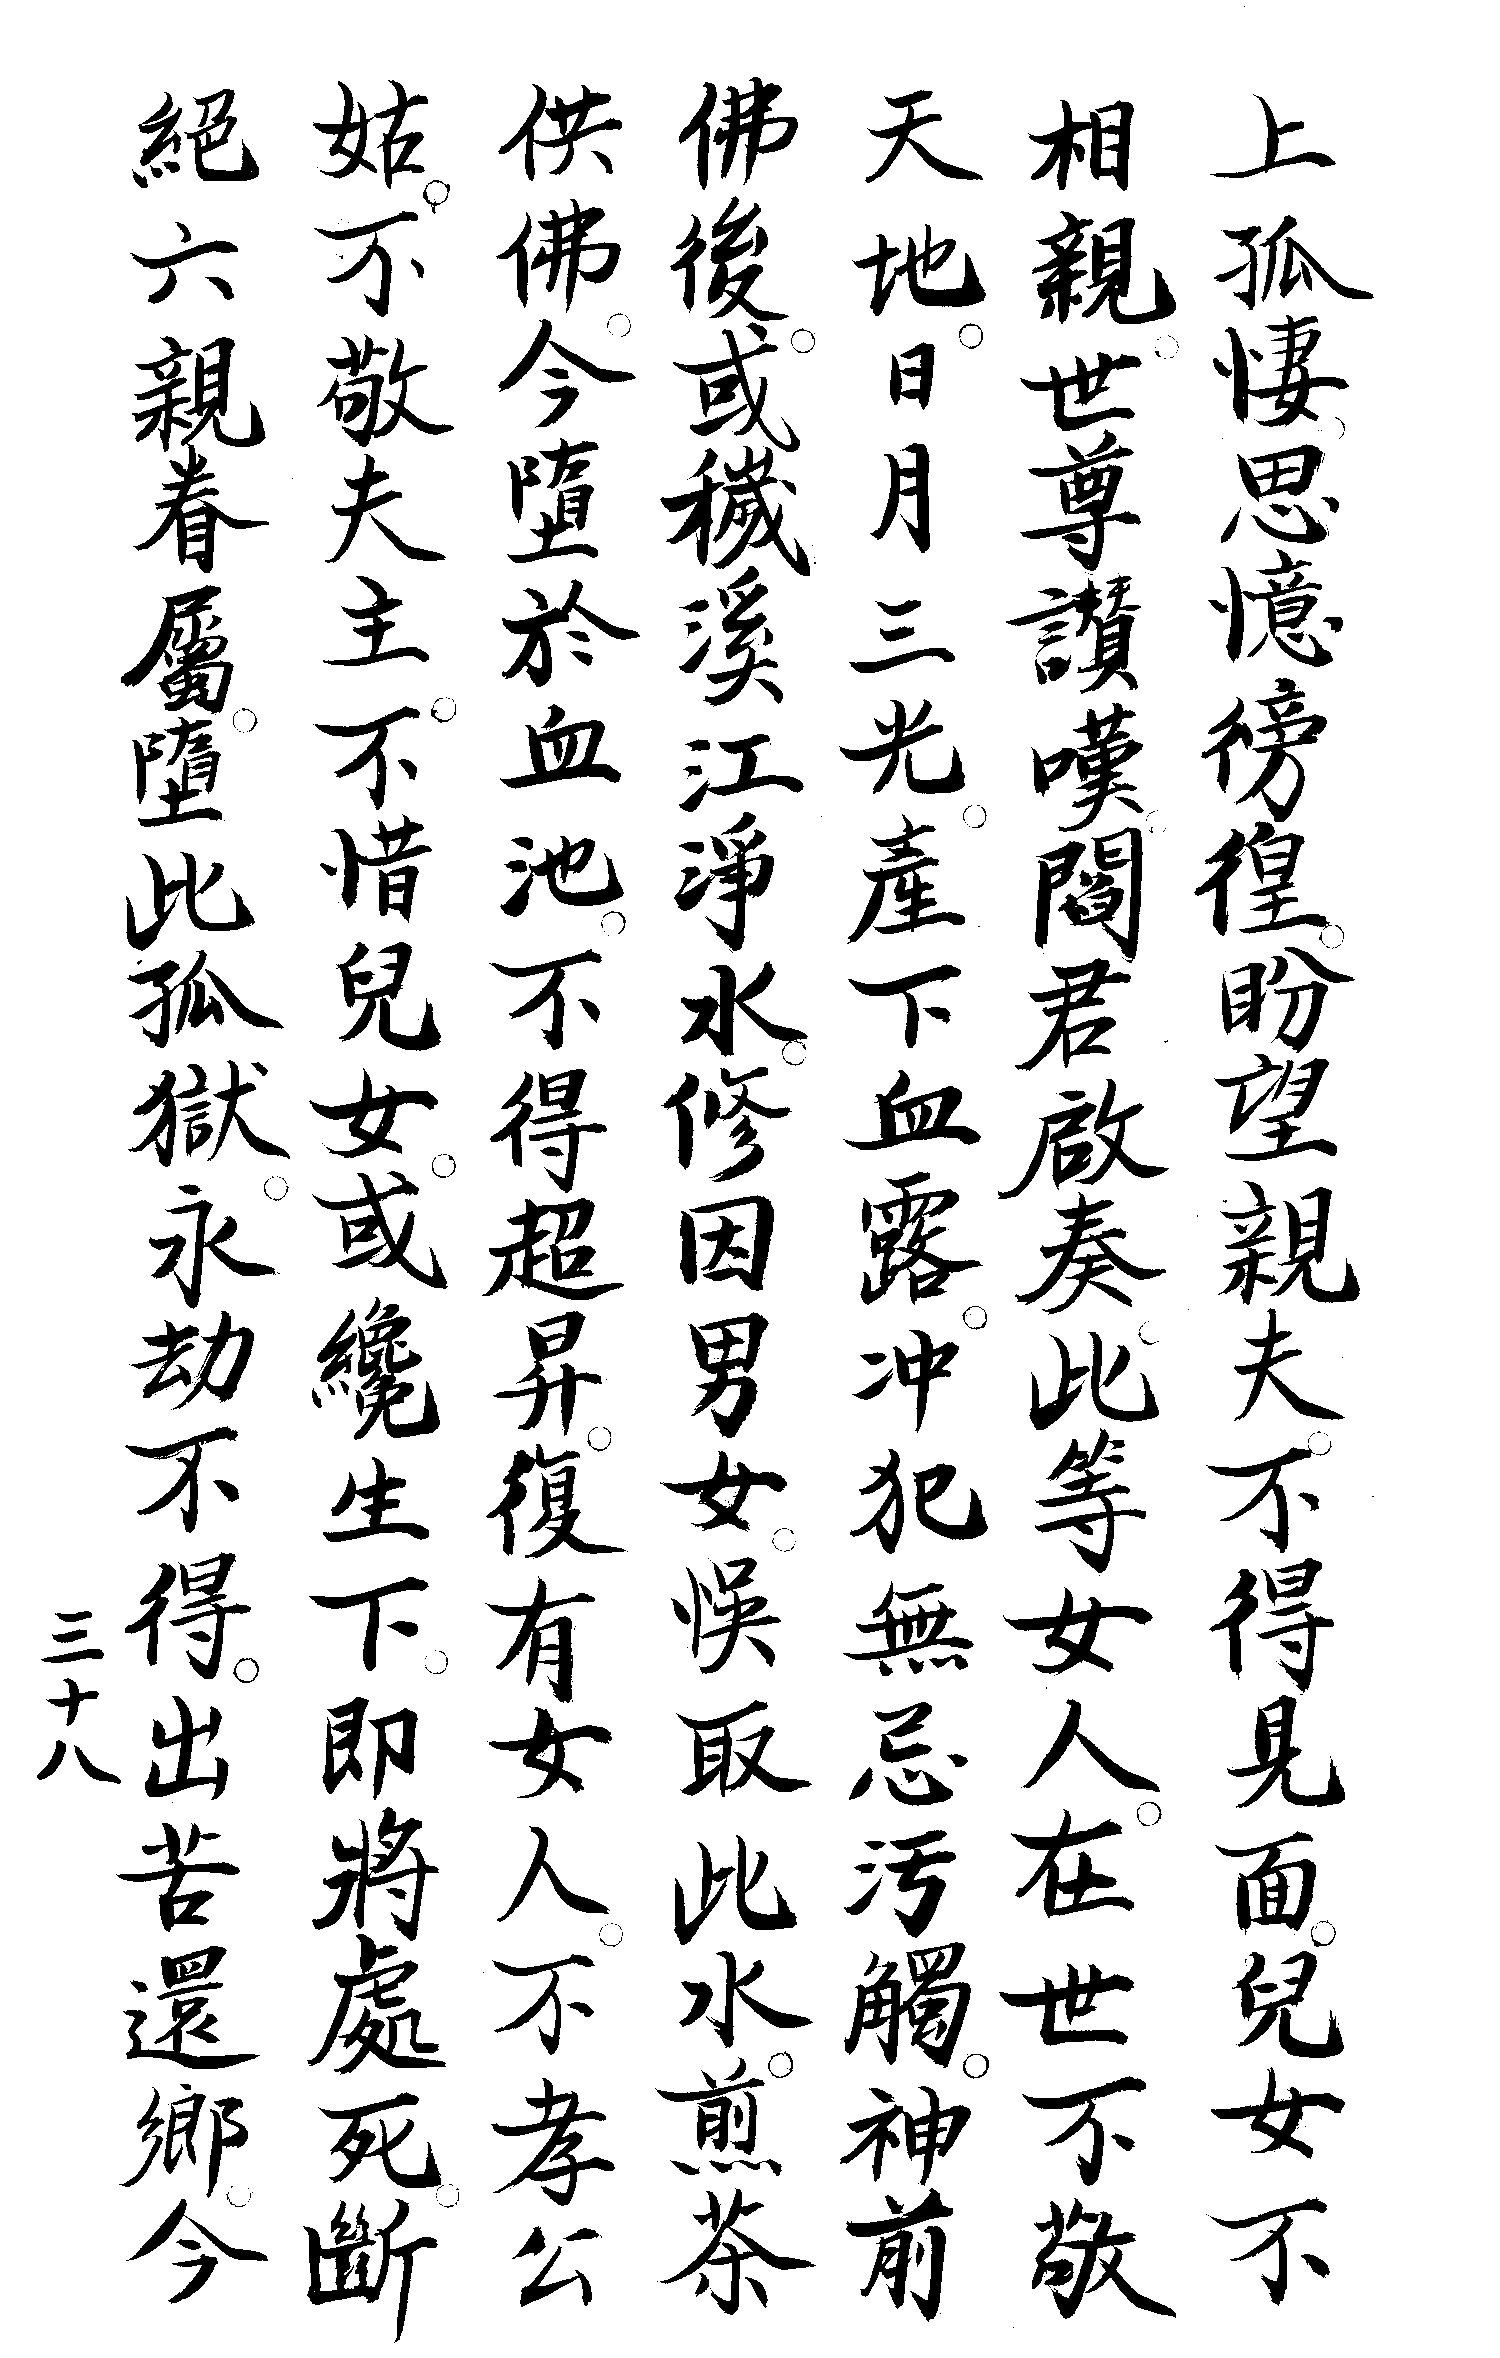 上孤悽。思憶徬徨。盼望親夫。不得見面。兒女不
相親。世尊讃嘆。閻君啟奏。此等女人。在世不敬
天地。日月三光。產下血露。冲犯無忌汚觸。神前
佛後。或穢溪江淨水。修因男女。悞取此水。煎茶
供佛。今墮於血池。不得超昇。復有女人。不孝公
姑。不敬夫主。不惜兒女。或纔生下。即將處死。斷
絕六親眷屬。墮此孤獄。永劫不得。出苦還鄉。今
三十八